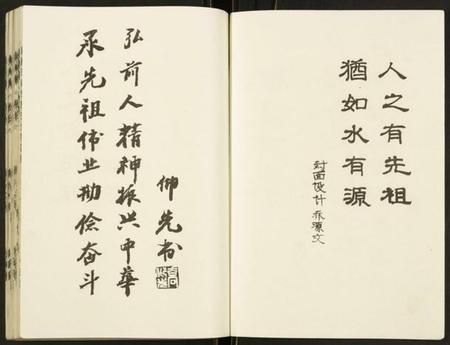 人之有先祖
猶如水有源
封面设计
弘前人精神振兴中华
承先祖伟业勤俭奋斗
仰先书